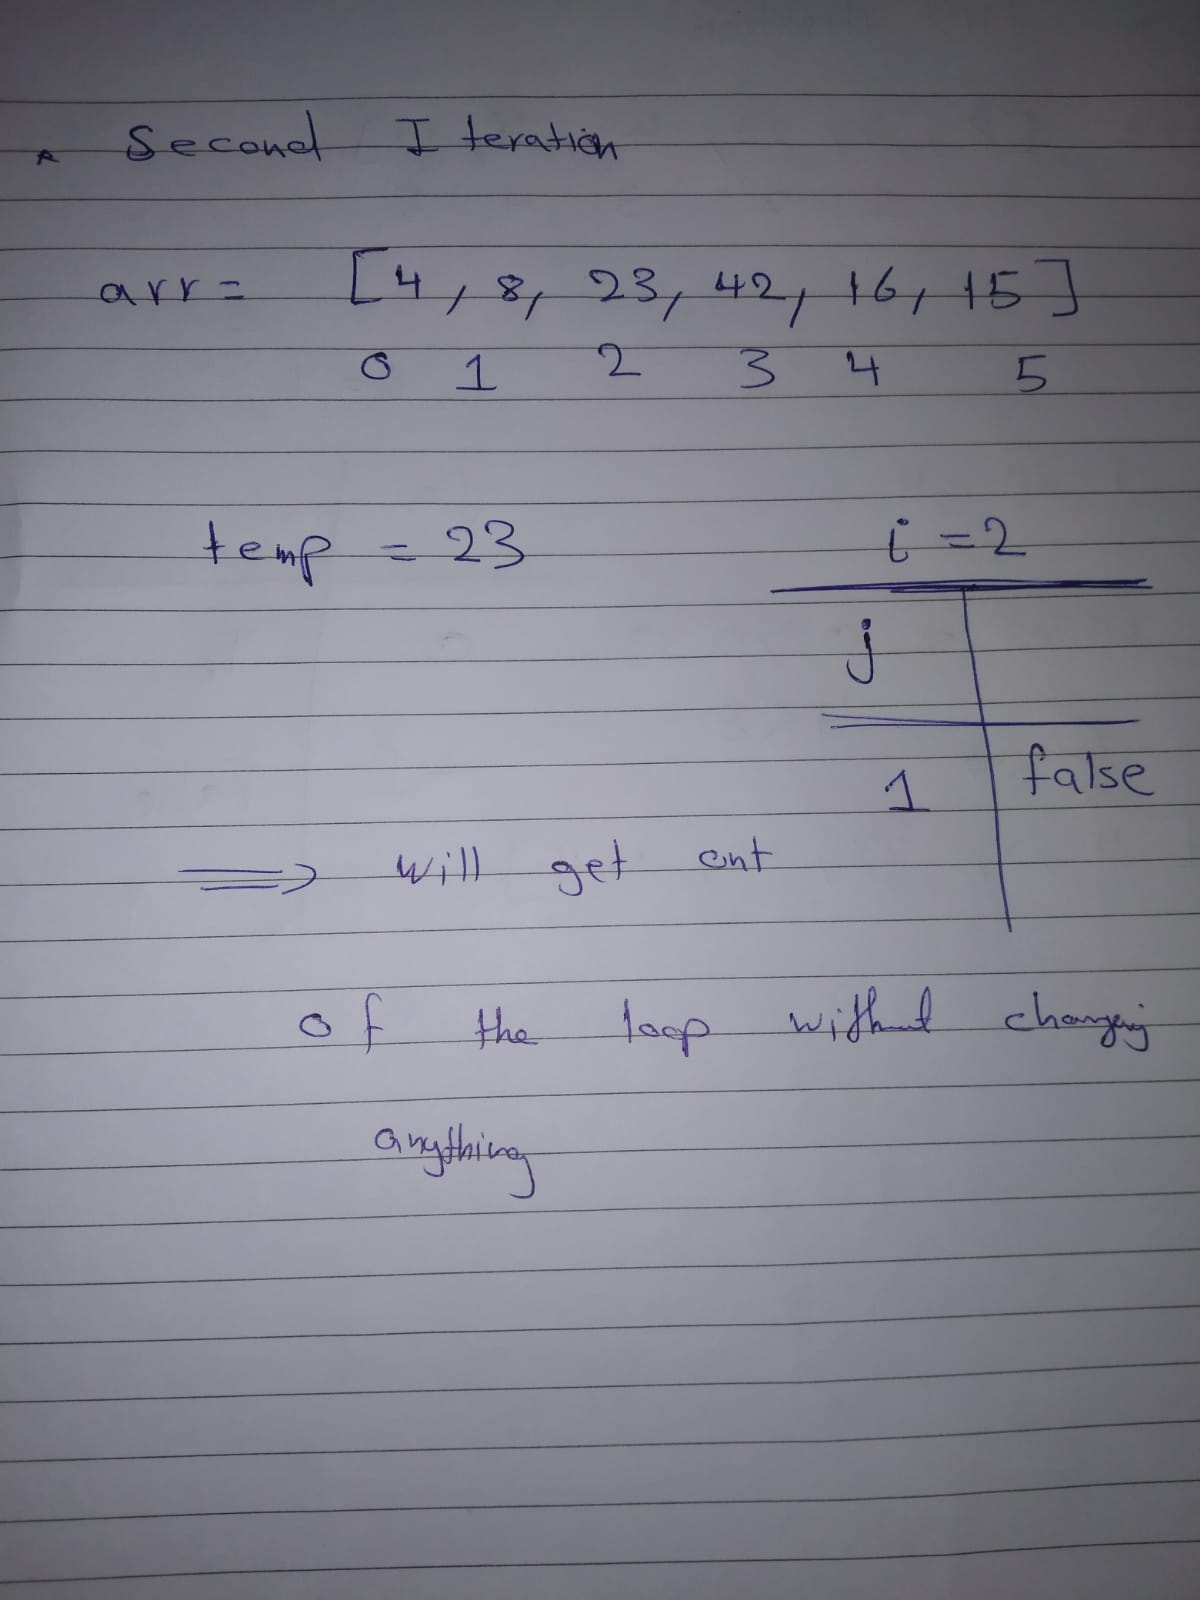 * Second Iteration
arr = [4, 8, 23, 42, 16, 15]
0 1 2 3 4 5
temp = 23 i = 2
j
1 false
=> will get out
of the loop without changing
anything